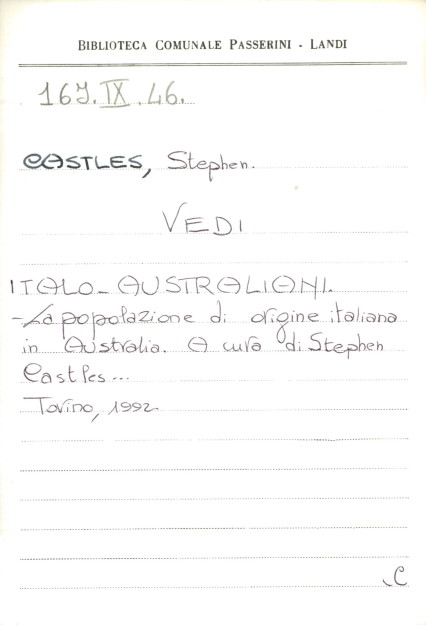 BIBLIOTECA COMUNALE PASSERINI - LANDI
16J.IX.46.
CASTLES, Stephen.
VEDI
ITALO-AUSTRALIANI.
- La popolazione di origine italiana
in Australia. A cura di Stephen
Castles...
Torino, 1992.
C